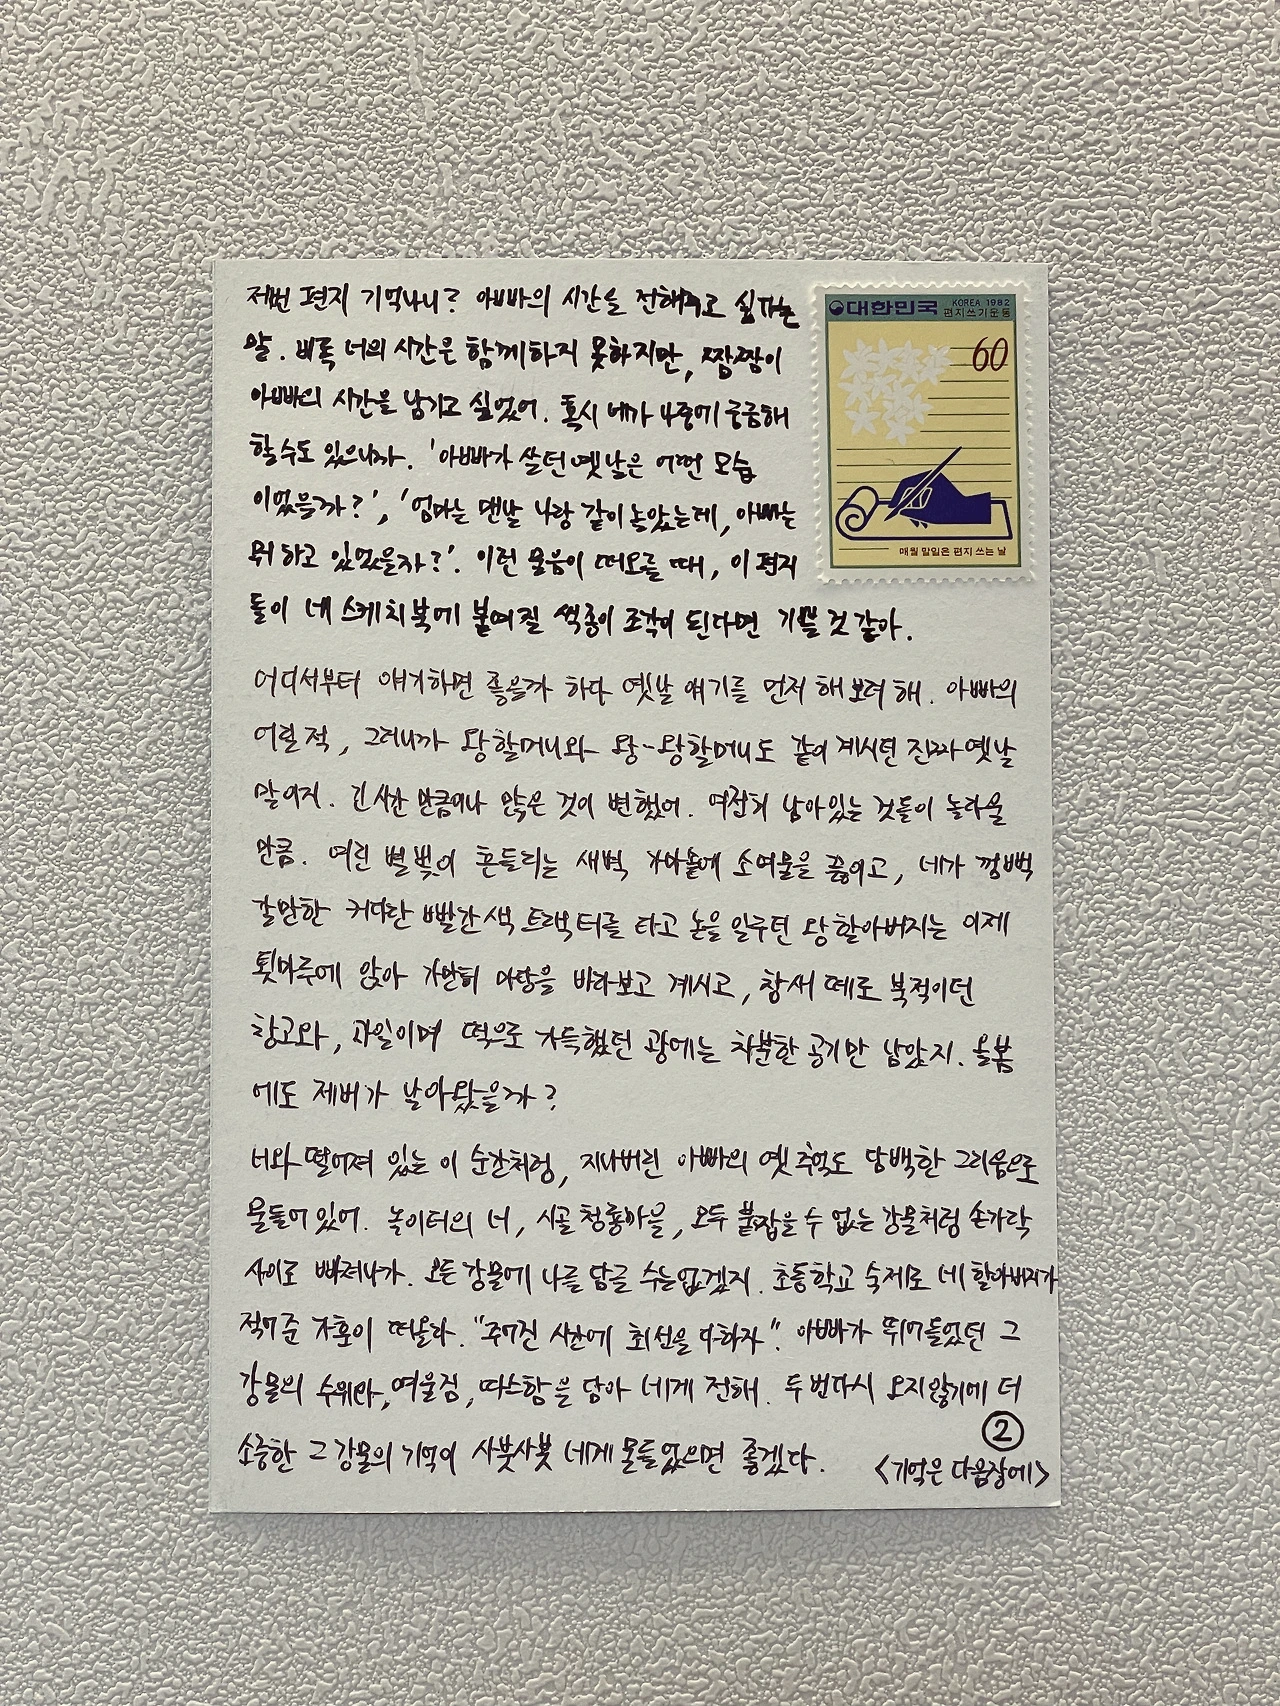 저번 편지 기억나니? 아빠의 시간을 전해주고 싶다는
말. 비록 너의 시간은 함께하지 못하지만, 짬짬이
아빠의 시간을 남기고 싶었어. 혹시 네가 나중에 궁금해
할수도 있으니까. '아빠가 살던 옛날은 어떤 모습
이었을까?', '엄마는 맨날 나랑 같이 놀았는데, 아빠는
뭐 하고 있었을까?'. 이런 물음이 떠오를 때, 이 편지
들이 네 스케치북에 붙여질 색종이 조각이 된다면 기쁠 것 같아.
어디서부터 얘기하면 좋을까 하다 옛날 얘기를 먼저 해보려 해. 아빠의
어릴 적, 그러니까 왕할머니와 왕-왕할머니도 같이 계시던 진짜 옛날
말이지. 긴 시간 만큼이나 많은 것이 변했어. 여전히 남아있는 것들이 놀라울
만큼. 여린 별빛이 흔들리는 새벽 가마솥에 소여물을 끓이고, 네가 깜빡
갈만한 커다란 빨간색 트랙터를 타고 논을 일구던 왕할아버지는 이제
툇마루에 앉아 가만히 마당을 바라보고 계시고, 참새 떼로 북적이던
창고와, 과일이며 떡으로 가득했던 광에는 차분한 공기만 남았지. 올봄
에도 제비가 날아왔을까?
너와 떨어져 있는 이 순간처럼, 지나버린 아빠의 옛 추억도 담백한 그리움으로
물들어 있어. 놀이터의 너, 시골 청룡마을, 모두 붙잡을 수 없는 강물처럼 손가락
사이로 빠져나가. 모든 강물에 나를 담글 수는 없겠지. 초등학교 숙제로 네 할아버지가
적어준 가훈이 떠올라. "주어진 시간에 최선을 다하자". 아빠가 뛰어들었던 그
강물의 수위와, 여울짐, 따스함을 담아 네게 전해. 두 번 다시 오지 않기에 더
소중한 그 강물의 기억이 사붓사붓 네게 물들었으면 좋겠다.
②
<기억은 다음장에>
대한민국
KOREA 1982
편지쓰기운동
60
매월 말일은 편지 쓰는 날